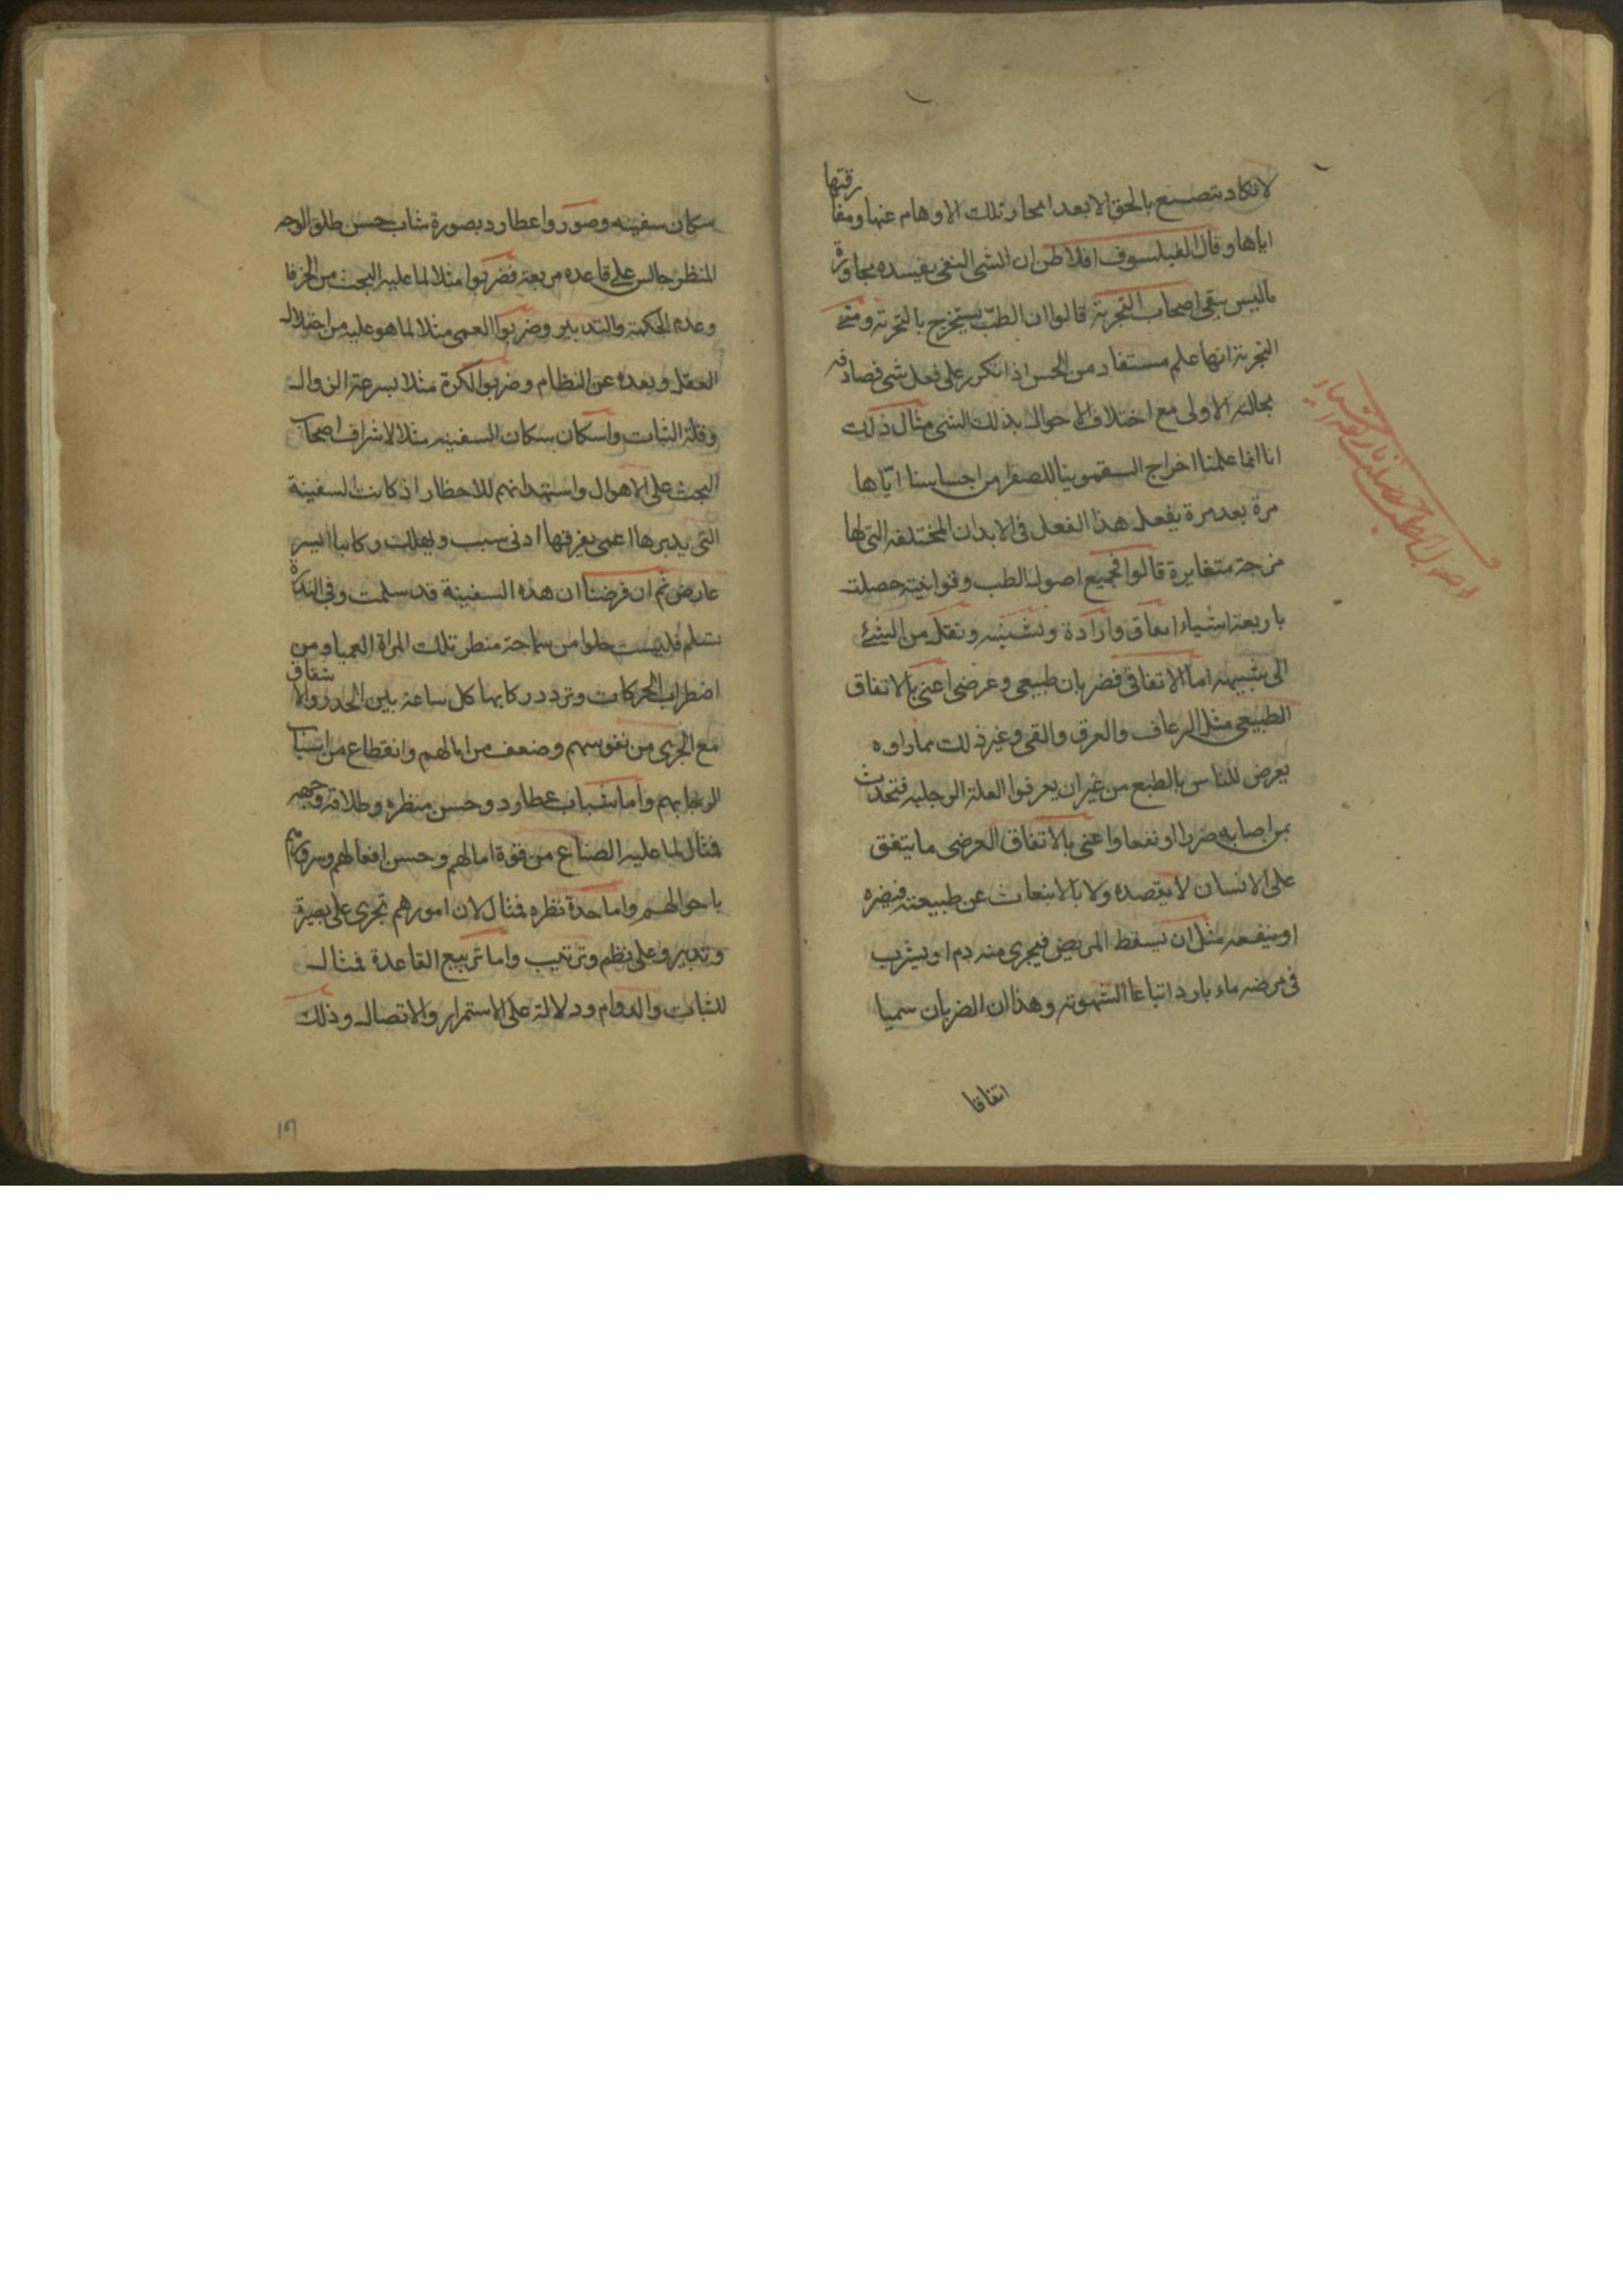 لا تكاد تتصنع بالحق الا بعد انمحار تلك الاوهام عنها ومفا
رقتها
اياها وقال الفيلسوف افلاطن ان الشى النقى يفسده مجاورة
ماليس بنقى اصحاب التجربة قالوا ان الطب يستخرج بالتجربة ومعنى
التجربة انها علم مستفاد من الحس اذا تكرر على فعل شى فصادفه
بحالته الاولى مع اختلاف الاحوال بذلك الشى مثال ذلك
انا انما علمنا اخراج السقمونيا للصفرا من احساسنا اياها
مرة بعد مرة يفعل هذا الفعل فى الابدان المختلفه التى لها
مزجة متغايرة قالوا فجميع اصول الطب وقوانينه حصلت
باربعة اشياء اتفاق وارادة وتشبيه ونقل من الشئ
الى شبيهه اما الاتفاقى فضربان طبيعى وعرضى اعنى بالاتفاق
الطبيعى مثل الرعاف والعرق والقى وغير ذلك مما راوه
يعرض للناس بالطبع من غير ان يعرفوا العلة الموجلبه فتحدث
بمن اصابه ضررا او نفعا واعنى بالاتفاق العرضى ما يتفق
على الانسان لا بقصده ولا بالانبعاث عن طبيعته فيضره
او ينفعه مثل ان يسقط المريض فيجرى منه دم او يشرب
فى مرضه ماء بارد اتباعا لشهوته وهذان الضربان سميا
اتفاقا
اصول الطب حصلت باربعة اشياء
سكان سفينه وصوروا عطارد بصورة شاب حسن طلق الوجه
المنظر جالس على قاعده مربعة فضربوا مثلا لما عليه البحث من الخرفا
وعدم الحكمة والتدبير وضربوا العمى مثلا لما هو عليه من اختلال
العقل وبعده عن النظام وضربوا الكرة مثلا بسرعة الزوال
وقلة الثبات واسكان بسكان السفينه مثلا لاشراف اصحاب
البحث على الاهوال واستهدانهم للاخطار اذ كانت السفينة
التى يدبرها اعمى يغرقها ادنى سبب ويهلك ركابها ايسر
عارض ثم ان فرضنا ان هذه السفينة قد سلمت وفى الندرة
تسلم فليست خلوا من سماجة منظر تلك المراة العميا ومن
اضطراب الحركات وتردد ركابها كل ساعة بين الحذر والا
شفاق
مع الجرى من نفوسهم وضعف من امالهم وانقطاع من اسباب
الرجا بهم واما شباب عطارد وحسن منظره وطلاقة وجهه
فمثال لما عليه الصناع من قوة امالهم وحسن افعالهم وسرورهم
باحوالهم واما حدة نظره فمثال لان امورهم تجرى على بصيرة
وتدبير وعلى نظم وترتيب واما تربيع القاعدة فمثال
للثبات والدوام ودلالة على الاستمرار والاتصال وذلك